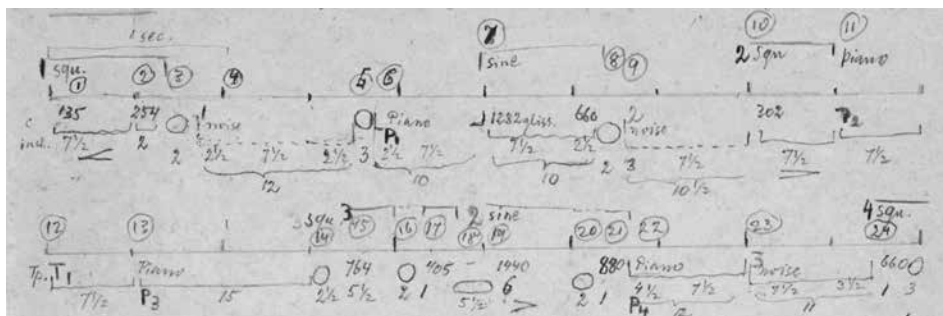 1 sec. 7 10 11
squ. 1 2 3 4 5 6 sine 8 9 2 squ piano
c 135 254 1 noise Piano 1282 gliss. 660 2 noise 302 P2
inch. 7½ 2 2 2½ 7½ 2½ 3 P1 2½ 7½ 7½ 2½ 2 3 7½ 7½ 7½
12 10 10 10½
squ 3 2 sine 4 squ.
12 13 14 15 16 17 18 19 20 21 22 23 24
Tp. T1 Piano 764 405 - 1440 880 Piano 3 noise 660
7½ P3 15 2½ 5½ 2 1 5½ 6 2 1 4½ 7½ 7½ 3½ 1 3
P4 11